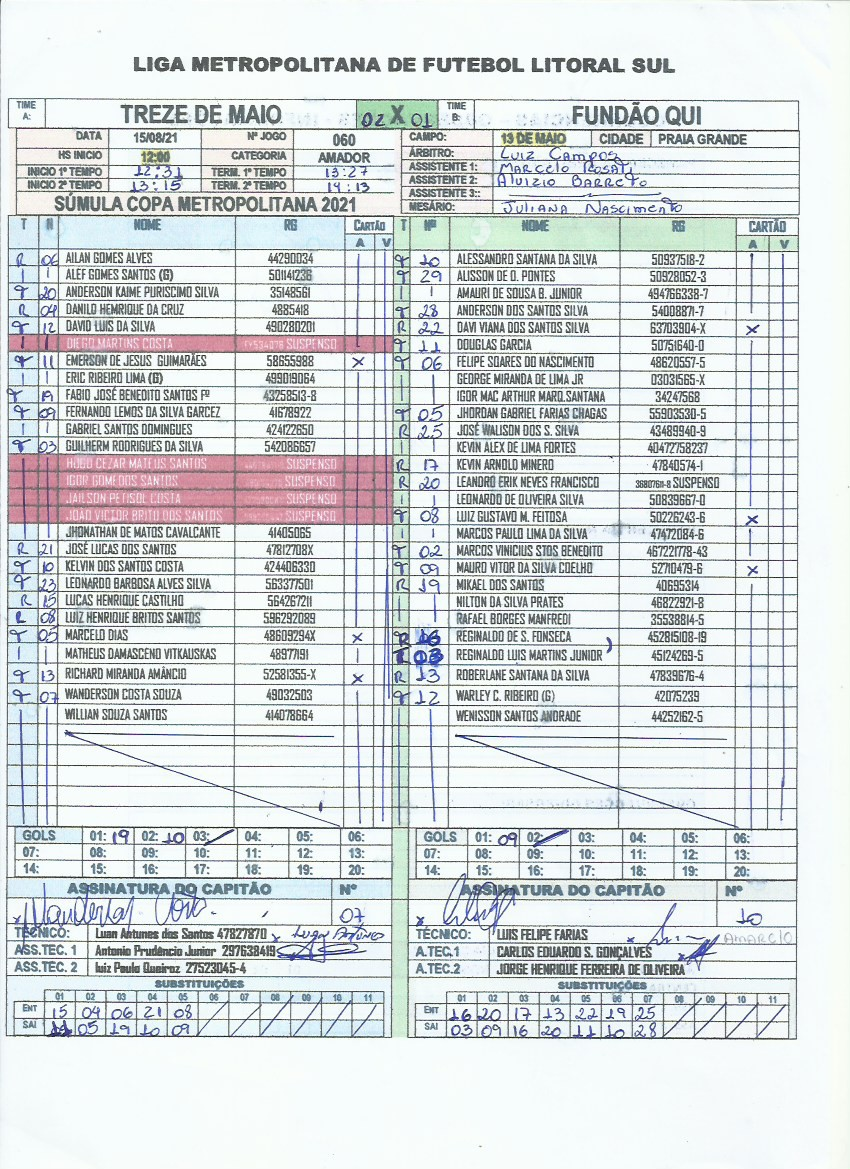 LIGA METROPOLITANA DE FUTEBOL LITORAL SUL
TIME A: TREZE DE MAIO 02 X 01 TIME B: FUNDÃO QUI
DATA 15/08/21 Nº JOGO 060
HS INICIO 12:00 CATEGORIA AMADOR
INICIO 1º TEMPO 12:31 TERM. 1º TEMPO 13:27
INICIO 2º TEMPO 13:15 TERM. 2º TEMPO 14:13
SÚMULA COPA METROPOLITANA 2021
CAMPO: 13 DE MAIO CIDADE PRAIA GRANDE
ÁRBITRO: Luiz Campos
ASSISTENTE 1: Marcelo Rosati
ASSISTENTE 2: Aluizio Barreto
ASSISTENTE 3::
MESÁRIO: Juliana Nascimento
T N NOME RG CARTÃO A V
R 06 AILAN GOMES ALVES 44290034
ALEF GOMES SANTOS (G) 501141236
T 20 ANDERSON KAIME PURISCIMO SILVA 35148561
R 04 DANILO HENRIQUE DA CRUZ 4885418
T 12 DAVID LUIS DA SILVA 490280201
DIEGO MARTINS COSTA SUSPENSO
T 11 EMERSON DE JESUS GUIMARÃES 58655988 X
ERIC RIBEIRO LIMA (G) 499019064
T 19 FABIO JOSÉ BENEDITO SANTOS Fº 43258513-8
T 09 FERNANDO LEMOS DA SILVA GARCEZ 41678922
GABRIEL SANTOS DOMINGUES 424122650
T 03 GUILHERM RODRIGUES DA SILVA 542086657
HUGO CEZAR MATEUS SANTOS SUSPENSO
IGOR GOMEDOS SANTOS SUSPENSO
JAILSON PETISOL COSTA SUSPENSO
JOAO VICTOR BRITO DOS SANTOS SUSPENSO
JHONATHAN DE MATOS CAVALCANTE 41405065
R 21 JOSÉ LUCAS DOS SANTOS 47812708X
T 10 KELVIN DOS SANTOS COSTA 424406330
T 23 LEONARDO BARBOSA ALVES SILVA 563377501
R 15 LUCAS HENRIQUE CASTILHO 564267211
R 08 LUIZ HENRIQUE BRITOS SANTOS 596292089
T 05 MARCELO DIAS 48609294X X
MATHEUS DAMASCENO VITKAUSKAS 48977191
T 13 RICHARD MIRANDA AMÂNCIO 52581355-X X
T 07 WANDERSON COSTA SOUZA 49032503
WILLIAN SOUZA SANTOS 414078664
T Nº NOME RG CARTÃO A V
T 10 ALESSANDRO SANTANA DA SILVA 50937518-2
T 29 ALISSON DE O. PONTES 50928052-3
AMAURI DE SOUSA B. JUNIOR 494766338-7
T 28 ANDERSON DOS SANTOS SILVA 54008871-7
R 22 DAVI VIANA DOS SANTOS SILVA 63703904-X X
T 11 DOUGLAS GARCIA 50751640-0
T 06 FELIPE SOARES DO NASCIMENTO 48620557-5
GEORGE MIRANDA DE LIMA JR 03031565-X
IGOR MAC ARTHUR MARQ.SANTANA 34247568
T 05 JHORDAN GABRIEL FARIAS CHAGAS 55903530-5
R 25 JOSÉ WALISON DOS S. SILVA 43489940-9
KEVIN ALEX DE LIMA FORTES 40472758237
R 17 KEVIN ARNOLO MINERO 47840574-1
R 20 LEANDRO ERIK NEVES FRANCISCO 36807611-8 SUSPENSO
LEONARDO DE OLIVEIRA SILVA 50839667-0
T 08 LUIZ GUSTAVO M. FEITOSA 50226243-6 X
MARCOS PAULO LIMA DA SILVA 47472084-6
T 02 MARCOS VINICIUS STOS BENEDITO 467221778-43
T 09 MAURO VITOR DA SILVA COELHO 52710479-6 X
R 19 MIKAEL DOS SANTOS 40695314
NILTON DA SILVA PRATES 46822921-8
RAFAEL BORGES MANFREDI 35538814-5
R 16 REGINALDO DE S. FONSECA 452815108-19
T 03 REGINALDO LUIS MARTINS JUNIOR 45124269-5
R 13 ROBERLANE SANTANA DA SILVA 47839676-4
T 12 WARLEY C. RIBEIRO (G) 42075239
WENISSON SANTOS ANDRADE 44252162-5
GOLS 01: 19 02: 10 03: 04: 05: 06:
07: 08: 09: 10: 11: 12: 13:
14: 15: 16: 17: 18: 19: 20:
ASSINATURA DO CAPITÃO Nº
07
TÉCNICO: Luan Antunes dos Santos 47827870 x Luan Antunes
ASS.TEC. 1 Antonio Prudêncio Junior 297638419
ASS.TEC. 2 luiz Paulo Queiroz 27523045-4
SUBSTITUIÇÕES
01 02 03 04 05 06 07 08 09 10 11
ENT 15 04 06 21 08
SAI 11 05 19 10 09
GOLS 01: 09 02: 03: 04: 05: 06:
07: 08: 09: 10: 11: 12: 13:
14: 15: 16: 17: 18: 19: 20:
ASSINATURA DO CAPITÃO Nº
10
TÉCNICO: LUIS FELIPE FARIAS
A.TEC.1 CARLOS EDUARDO S. GONÇALVES
A.TEC.2 JORGE HENRIQUE FERREIRA DE OLIVEIRA
SUBSTITUIÇÕES
01 02 03 04 05 06 07 08 09 10 11
ENT 16 20 17 13 22 19 25
SAI 03 09 16 20 11 10 28